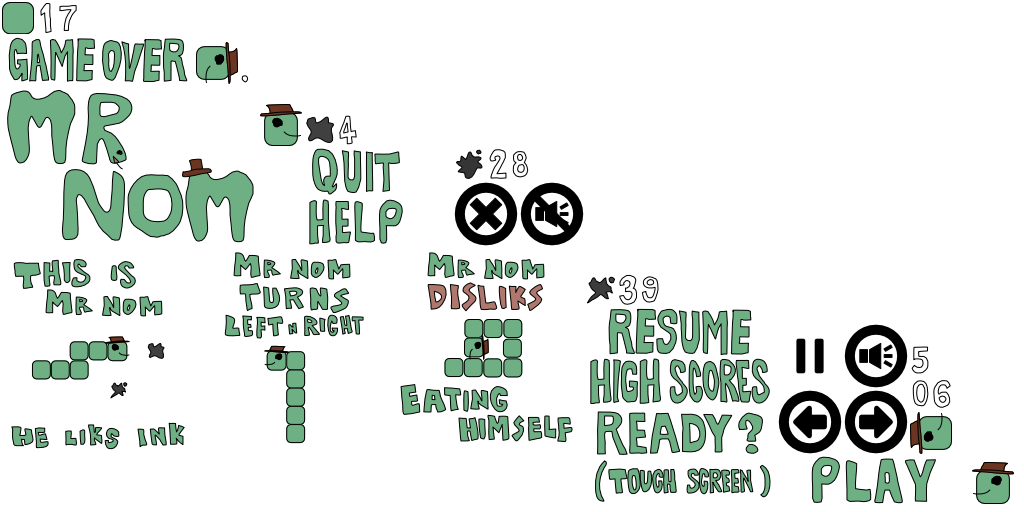 17
GAME OVER .
MR
NOM
4
QUIT
HELP
28
THIS IS
MR NOM
HE LIKS INK
MR NOM
TURNS
LEFT N RIGHT
MR NOM
DISLIKS
EATING
HIMSELF
39
RESUME
HIGH SCORES
READY?
(TOUCH SCREEN)
5
06
PLAY